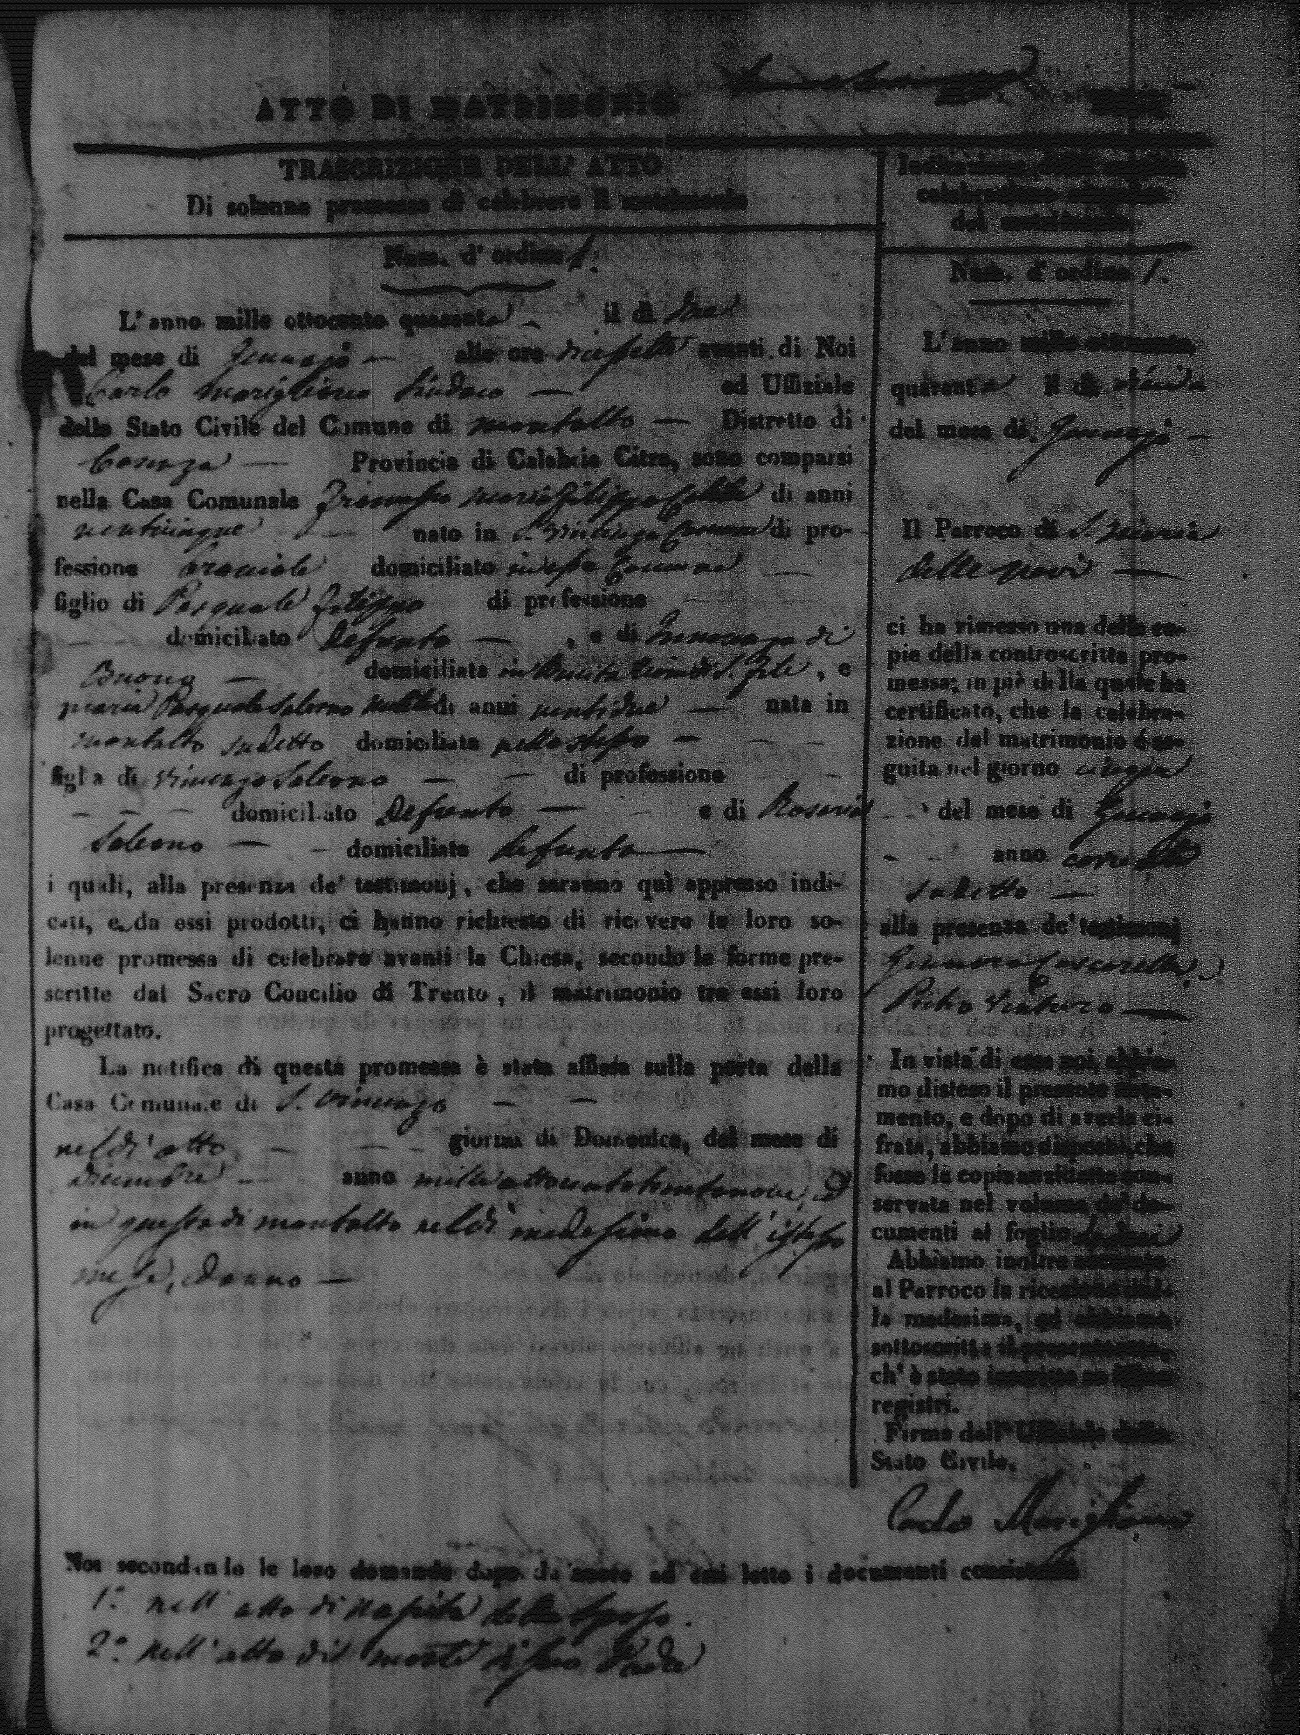 ATTO DI MATRIMONIO
TRASCRIZIONE DELL' ATTO
Di solenne promessa di celebrare il matrimonio
Num. d' ordine 1.
L' anno mille ottocento quaranta il dì tre
del mese di Gennajo alle ore diecisette avanti di Noi
Carlo Marigliano Sindaco ed Uffiziale
dello Stato Civile del Comune di Montalto Distretto di
Cosenza Provincia di Calabria Citra, sono comparsi
nella Casa Comunale Francesco Maria Filippo di anni
venticinque nato in S. Vincenzo Comune di pro-
fessione domiciliato in esso Comune
figlio di Pasquale Filippo di professione
domiciliato Defunto , e di
Buono domiciliata in , e
Maria Pasquale Salerno nubile di anni ventidue nata in
Montalto sudetto domiciliata nello stesso
figlia di Vincenzo Salerno di professione
domiciliato Defunto e di Rosaria
Salerno domiciliata defunta
i quali, alla presenza de' testimonj, che saranno quì appresso indi-
cati, e da essi prodotti, ci hanno richiesto di ricevere la loro so-
lenne promessa di celebrare avanti la Chiesa, secondo le forme pre-
scritte dal Sacro Concilio di Trento, il matrimonio tra essi loro
progettato.
La notifica di questa promessa è stata affissa sulla porta della
Casa Comunale di S. Vincenzo
nel dì otto giorni di Domenica, del mese di
Dicembre anno mille ottocento trentanove, ed
in questa di Montalto nel dì medesimo dell' istesso
mese, ed anno
Indicazione della
celebrazione
del matrimonio
Num. d' ordine 1.
L' anno mille ottocento
quaranta il dì
del mese di Gennajo
Il Parroco di S. Maria
della
ci ha rimesso una delle co-
pie della controscritta pro-
messa; in piè della quale ha
certificato, che la celebra-
zione del matrimonio è se-
guita nel giorno cinque
del mese di Gennajo
anno corrente
sudetto
alla presenza de' testimonj
Gennaro
Pietro Ventura
In vista di essa noi abbia-
mo disteso il presente notamento,
mento, e dopo di averla ci-
frata, abbiamo disposto, che
fosse la copia anzidetta con-
servata nel volume de' do-
cumenti al foglio
Abbiamo inoltre
al Parroco la ricezione del-
la medesima, ed abbiamo
sottoscritto il presente atto,
ch' è stato inserito
registri.
Firma dell' Uffiziale dello
Stato Civile.
Carlo Marigliano
Noi secondando le loro domande dopo di aver ad essi letto i documenti consistenti
1.° nell' atto di nascita dello sposo.
2.° nell' atto di morte di suo Padre